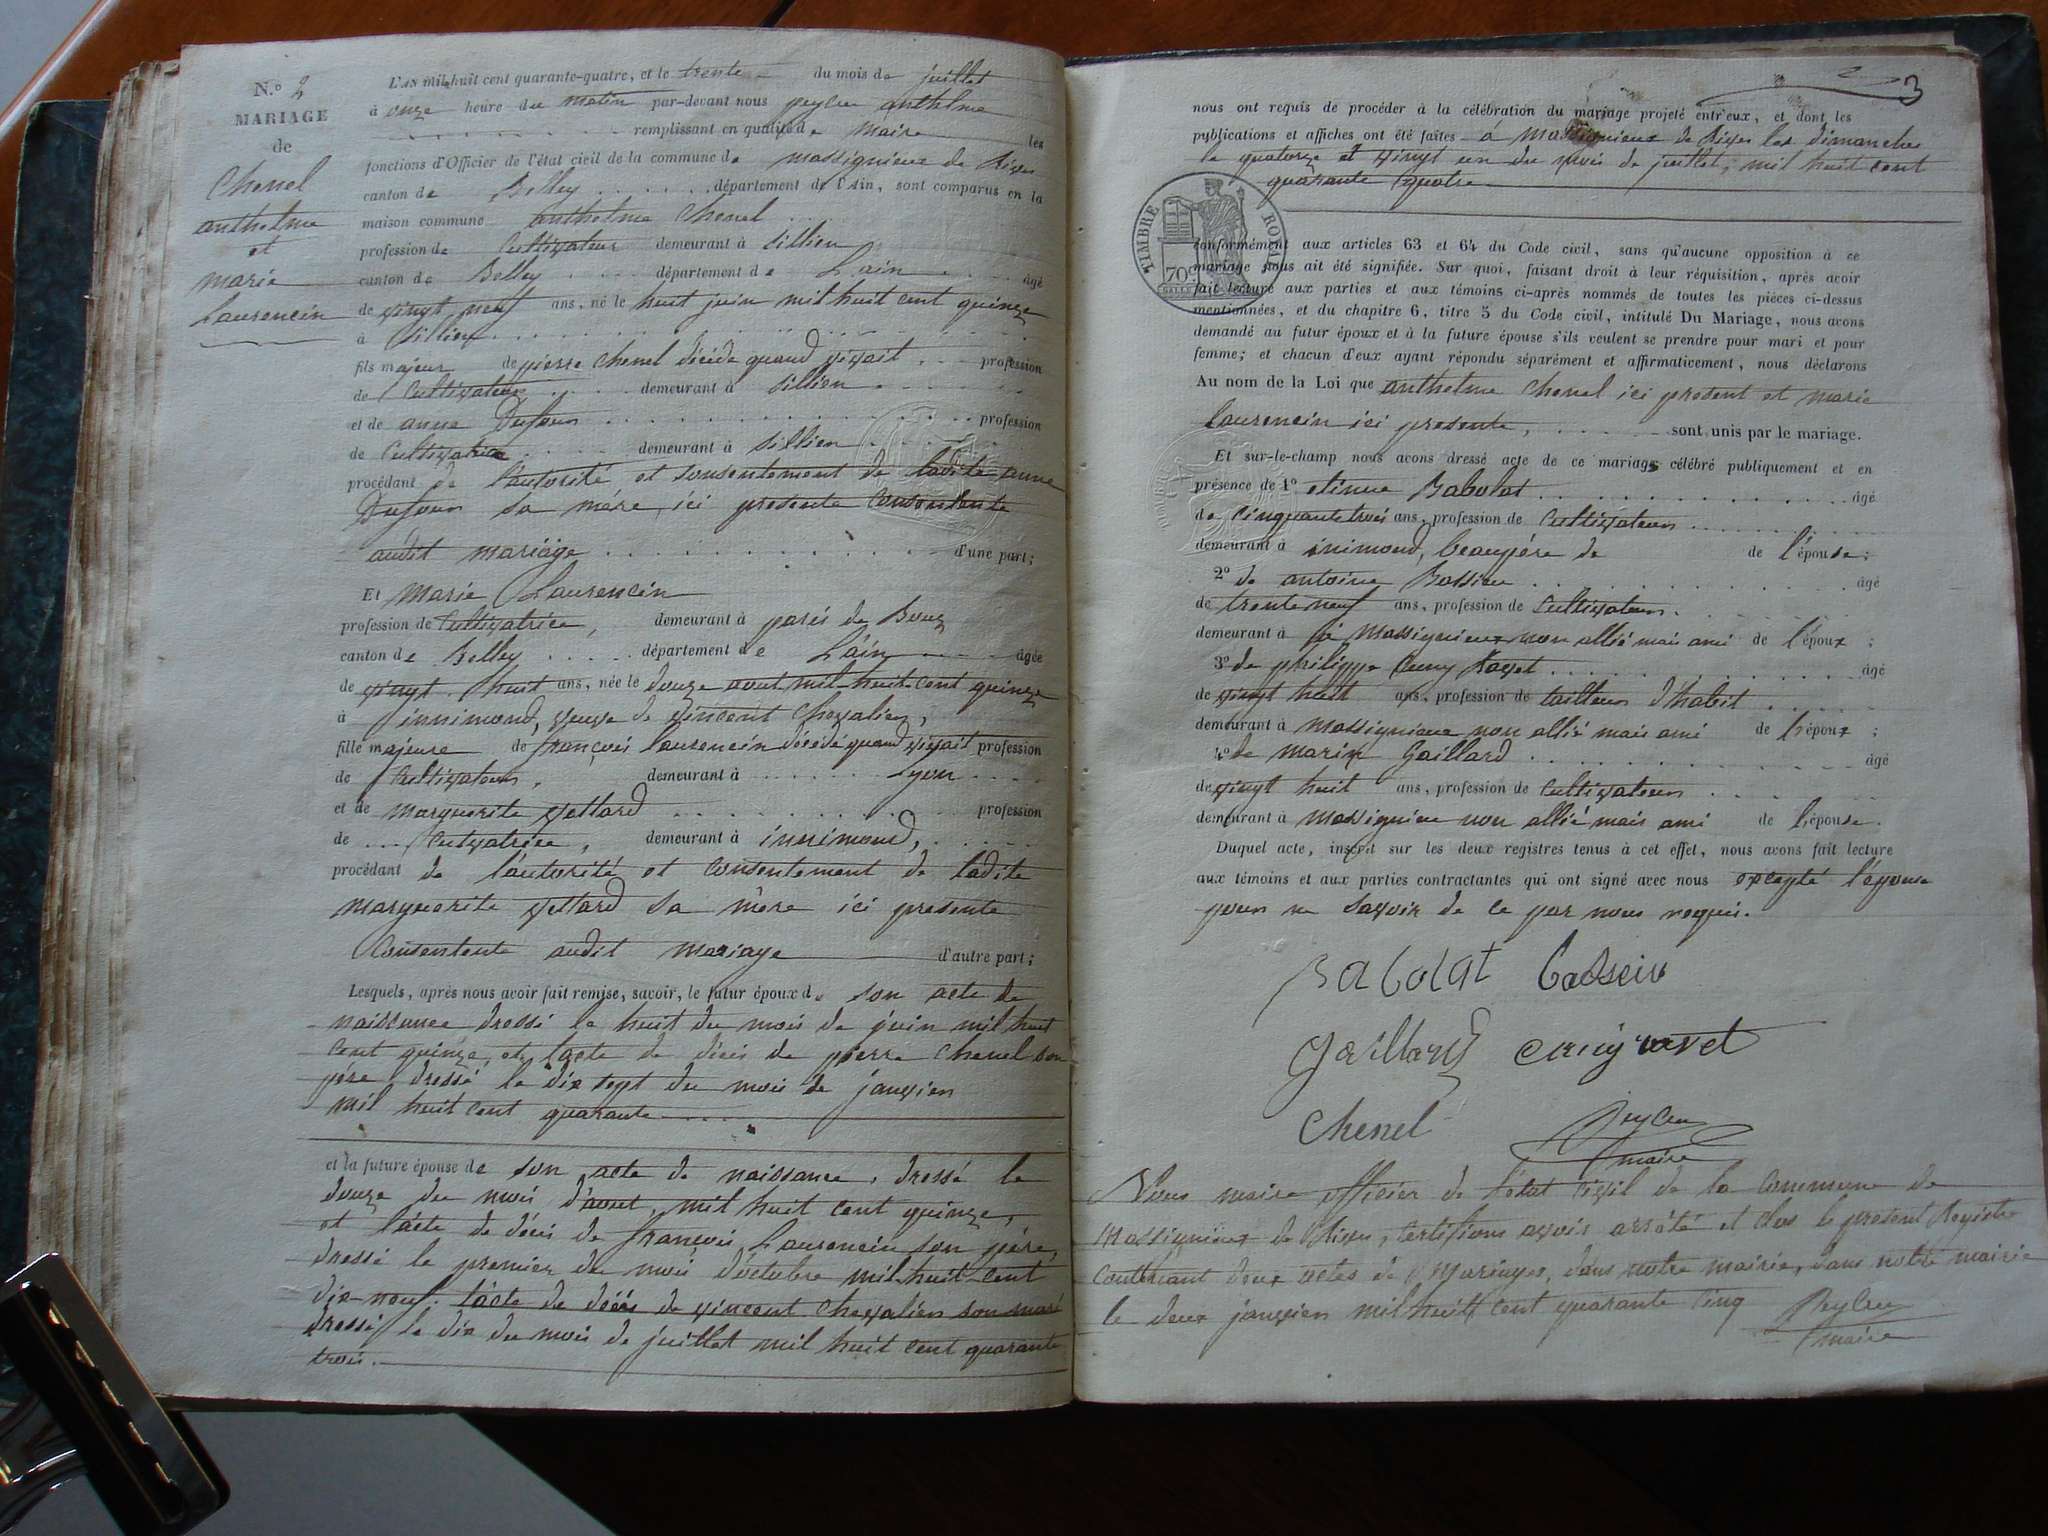 N.o 2
MARIAGE
de
Chenel
anthelme
et
marie
Laurencin
L'AN mil huit cent quarante-quatre, et le trente du mois de juillet
à onze heure du matin par-devant nous peyleu anthelme
remplissant en qualité de maire les
fonctions d'Officier de l'état civil de la commune de massignieux de Rives
canton de Belley département de l'Ain, sont comparus en la
maison commune anthelme Chenel
profession de Cultivateur demeurant à sillien
canton de Belley département de Lain âgé
de vingt neuf ans, né le huit juin mil huit cent quinze
à sillien
fils majeur de pierre chenel décédé quand vivait profession
de Cultivateur demeurant à sillien
et de anne Dufour profession
de Cultivatrice demeurant à sillien
procédant de l'autorité et consentement de ladite anne
Dufour sa mére, ici presente Consentente
audit mariage d'une part;
Et Marie Laurencin
profession de Cultivatrice, demeurant à parés de Bouz
canton de Belley département de Lain âgée
de vingt huit ans, née le douze aout mil huit cent quinze
à innimond, veuve de vincent chevalier,
fille majeure de françois laurencin décédé quand vivait profession
de Cultivateur, demeurant à Lyon
et de marguerite vettard profession
de Cutvatrice, demeurant à innimond,
procédant de l'autorité et consentement de ladite
marguerite vettard sa mère ici presente
Consentente audit mariage d'autre part;
Lesquels, après nous avoir fait remise, savoir, le futur époux de son acte de
naissance dressé le huit du mois de juin mil huit
cent quinze, et lacte de décés de pierre Chenel son
pére dressé le dix sept du mois de janvier
mil huit cent quarante
et la future épouse de son acte de naissance, dressé le
douze du mois d'aout, mil huit cent quinze,
et l'acte de décés de françois Laurencin son pére,
dressé le premier du mois d'octobre mil huit cent
dix-neuf. l'acte de décés de vincent chevalier son mari
dressé le dix du mois de juillet mil huit cent quarante
trois.
3
nous ont requis de procéder à la célébration du mariage projeté entr'eux, et dont les
publications et affiches ont été faites a massignieux de Rives les dimanches
le quatorze et vingt un du mois de juillet, mil huit cent
quarante quatre
TIMBRE ROYAL
70c
conformément aux articles 63 et 64 du Code civil, sans qu'aucune opposition à ce
mariage nous ait été signifiée. Sur quoi, faisant droit à leur réquisition, après avoir
fait lecture aux parties et aux témoins ci-après nommés de toutes les pièces ci-dessus
mentionnées, et du chapitre 6, titre 5 du Code civil, intitulé Du Mariage, nous avons
demandé au futur époux et à la future épouse s'ils veulent se prendre pour mari et pour
femme; et chacun d'eux ayant répondu séparément et affirmativement, nous déclarons
Au nom de la Loi que anthelme Chenel ici present et marie
laurencin ici presente, sont unis par le mariage.
Et sur-le-champ nous avons dressé acte de ce mariage célébré publiquement et en
présence de 1º etienne Babolat âgé
de Cinquante trois ans, profession de Cultivateur
demeurant à inimond, beaupére de de l'épouse;
2º de antoine Bassieu âgé
de trente neuf ans, profession de Cultivateur.
demeurant à massignieux non allié mais ami de l'époux;
3º de philippe Cuny Ravet âgé
de vingt huit ans, profession de tailleur d'habit
demeurant à massignieux non allié mais ami de l'époux;
4º de marin Gaillard âgé
de vingt huit ans, profession de Cultivateur
demeurant à massignieu non allié mais ami de l'épouse.
Duquel acte, inscrit sur les deux registres tenus à cet effet, nous avons fait lecture
aux témoins et aux parties contractantes qui ont signé avec nous excepté l'épouse
pour ne savoir de ce par nous requis.
Babolat Bassieu
Gaillard Cuny ravet
Chenel Peyleu
maire
Nous maire officier de l'état Civil de la Commune de
Massignieux de Rives, certifions avoir arrêté et clos le present Registre
Contenant deux actes de Mariages, dans notre mairie, dans notre mairie
le deux janvier mil huit cent quarante cinq Peyleu
maire